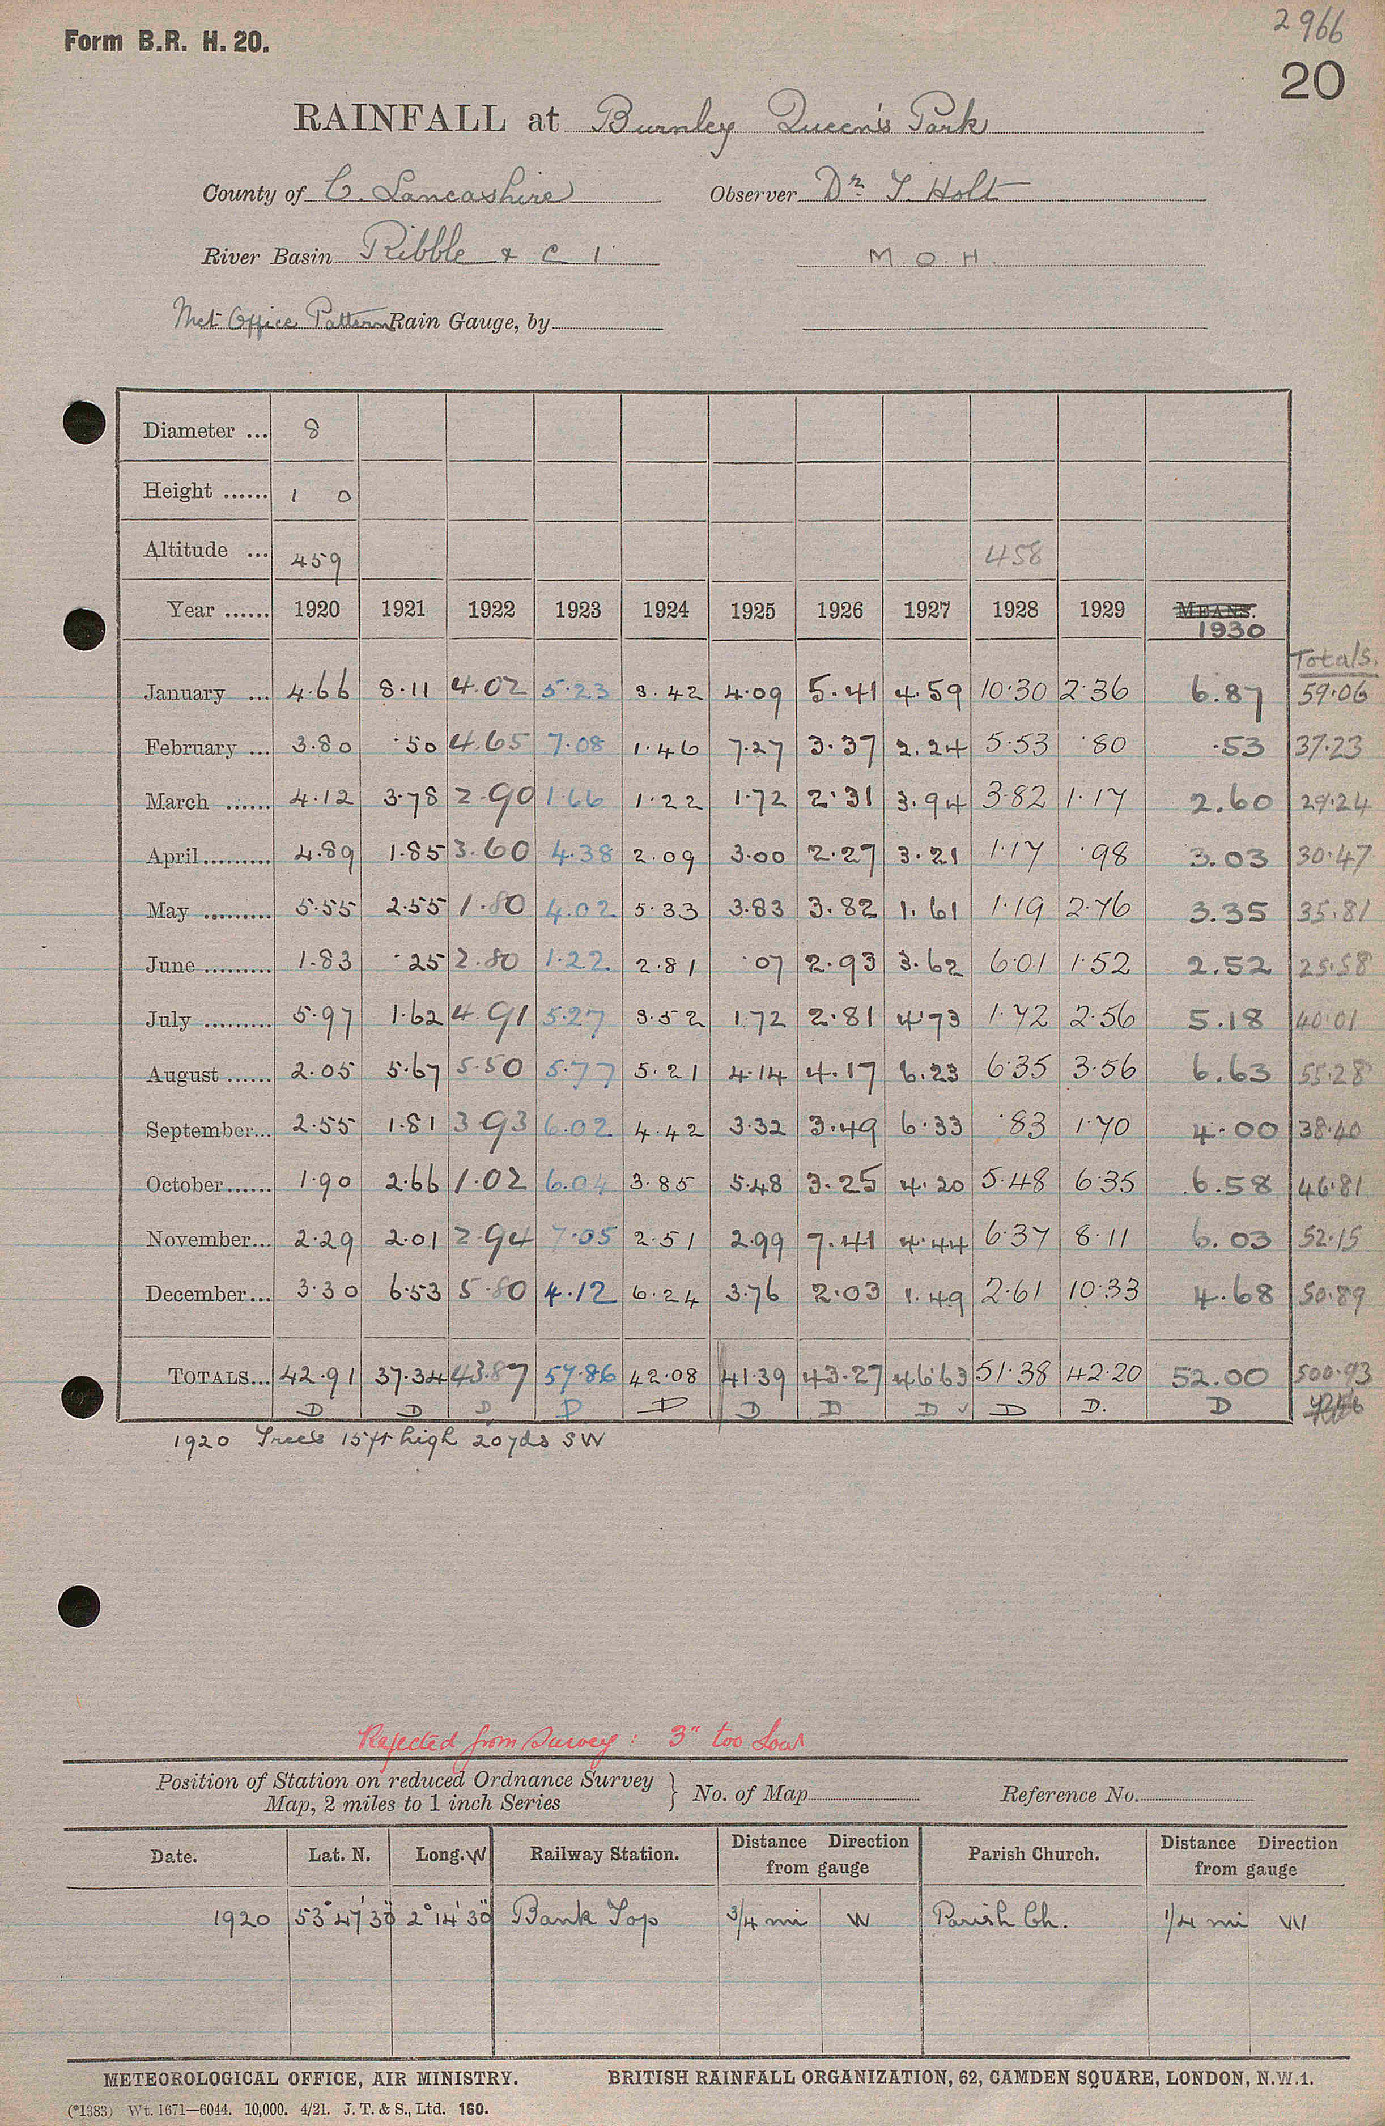 2966
Form B.R. H. 20.
20
RAINFALL at Burnley Queen's Park
County of C. Lancashire Observer Dr. T. Holt
River Basin Ribble & C 1 M O H.
Met Office Pattern Rain Gauge, by
Diameter ... 8
Height ...... 1 0
Altitude ... 459 458
Year ...... 1920 1921 1922 1923 1924 1925 1926 1927 1928 1929 MEANS. 1930
Totals.
January ... 4.66 8.11 4.02 5.23 3.42 4.09 5.41 4.59 10.30 2.36 6.87 59.06
February ... 3.80 .50 4.65 7.08 1.46 7.27 3.37 2.24 5.53 .80 .53 37.23
March ...... 4.12 3.78 2.90 1.66 1.22 1.72 2.31 3.94 3.82 1.17 2.60 29.24
April......... 4.89 1.85 3.60 4.38 2.09 3.00 2.27 3.21 1.17 .98 3.03 30.47
May ......... 5.55 2.55 1.80 4.02 5.33 3.83 3.82 1.61 1.19 2.76 3.35 35.81
June ......... 1.83 .25 2.80 1.22 2.81 .07 2.93 3.62 6.01 1.52 2.52 25.58
July ......... 5.97 1.62 4.91 5.27 3.52 1.72 2.81 4.73 1.72 2.56 5.18 40.01
August ...... 2.05 5.67 5.50 5.77 5.21 4.14 4.17 6.23 6.35 3.56 6.63 55.28
September... 2.55 1.81 3.93 6.02 4.42 3.32 3.49 6.33 .83 1.70 4.00 38.40
October...... 1.90 2.66 1.02 6.04 3.85 5.48 3.25 4.20 5.48 6.35 6.58 46.81
November... 2.29 2.01 2.94 7.05 2.51 2.99 7.41 4.44 6.37 8.11 6.03 52.15
December... 3.30 6.53 5.80 4.12 6.24 3.76 2.03 1.49 2.61 10.33 4.68 50.89
TOTALS... 42.91 37.34 43.87 57.86 42.08 41.39 43.27 46.63 51.38 42.20 52.00 500.93
D D D D D D D D ✓ D D. D
1920 Trees 15ft high 20yds SW
Rejected from Survey : 3" too low
Position of Station on reduced Ordnance Survey Map, 2 miles to 1 inch Series } No. of Map Reference No.
Date. Lat. N. Long. W Railway Station. Distance Direction from gauge Parish Church. Distance Direction from gauge
1920 53° 47' 30" 2° 14' 30" Bank Top 3/4 mi W Parish Ch. 1/4 mi W
METEOROLOGICAL OFFICE, AIR MINISTRY. BRITISH RAINFALL ORGANIZATION, 62, CAMDEN SQUARE, LONDON, N.W.1.
(*1383) Wt. 1671—6044. 10,000. 4/21. J. T. & S., Ltd. 160.